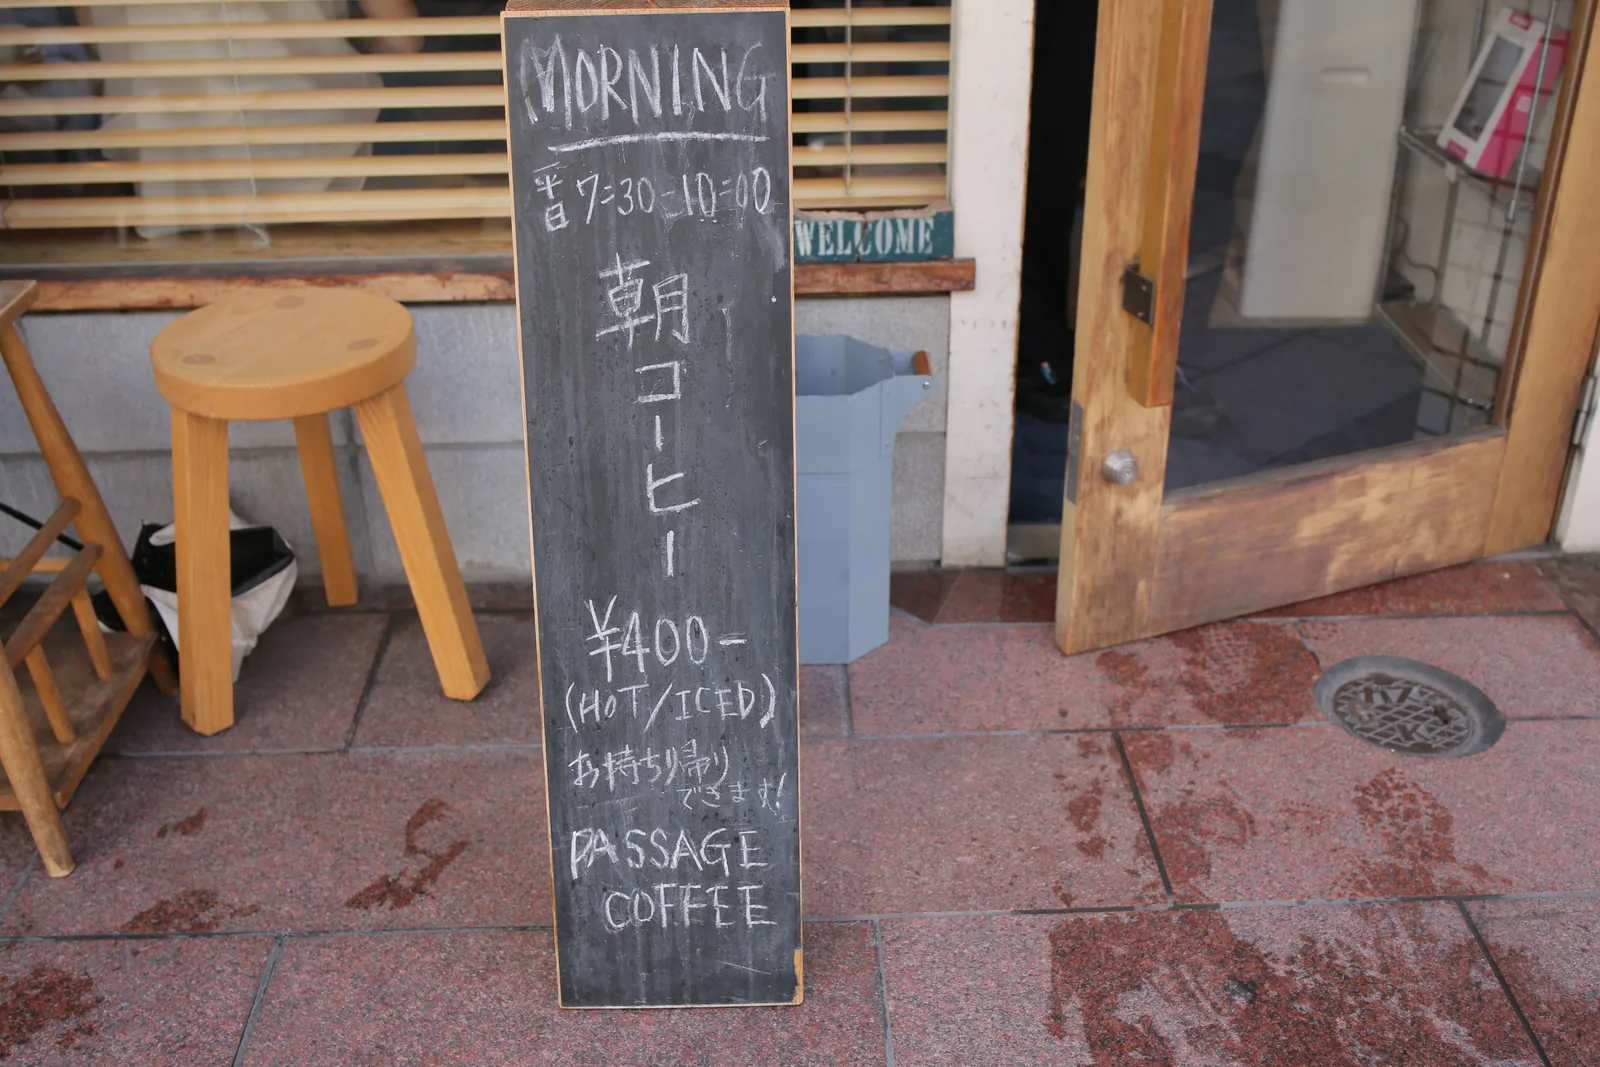 MORNING
平日 7:30-10:00
WELCOME
朝コーヒー
¥400-
(HOT/ICED)
お持ち帰り
できます!
PASSAGE
COFFEE